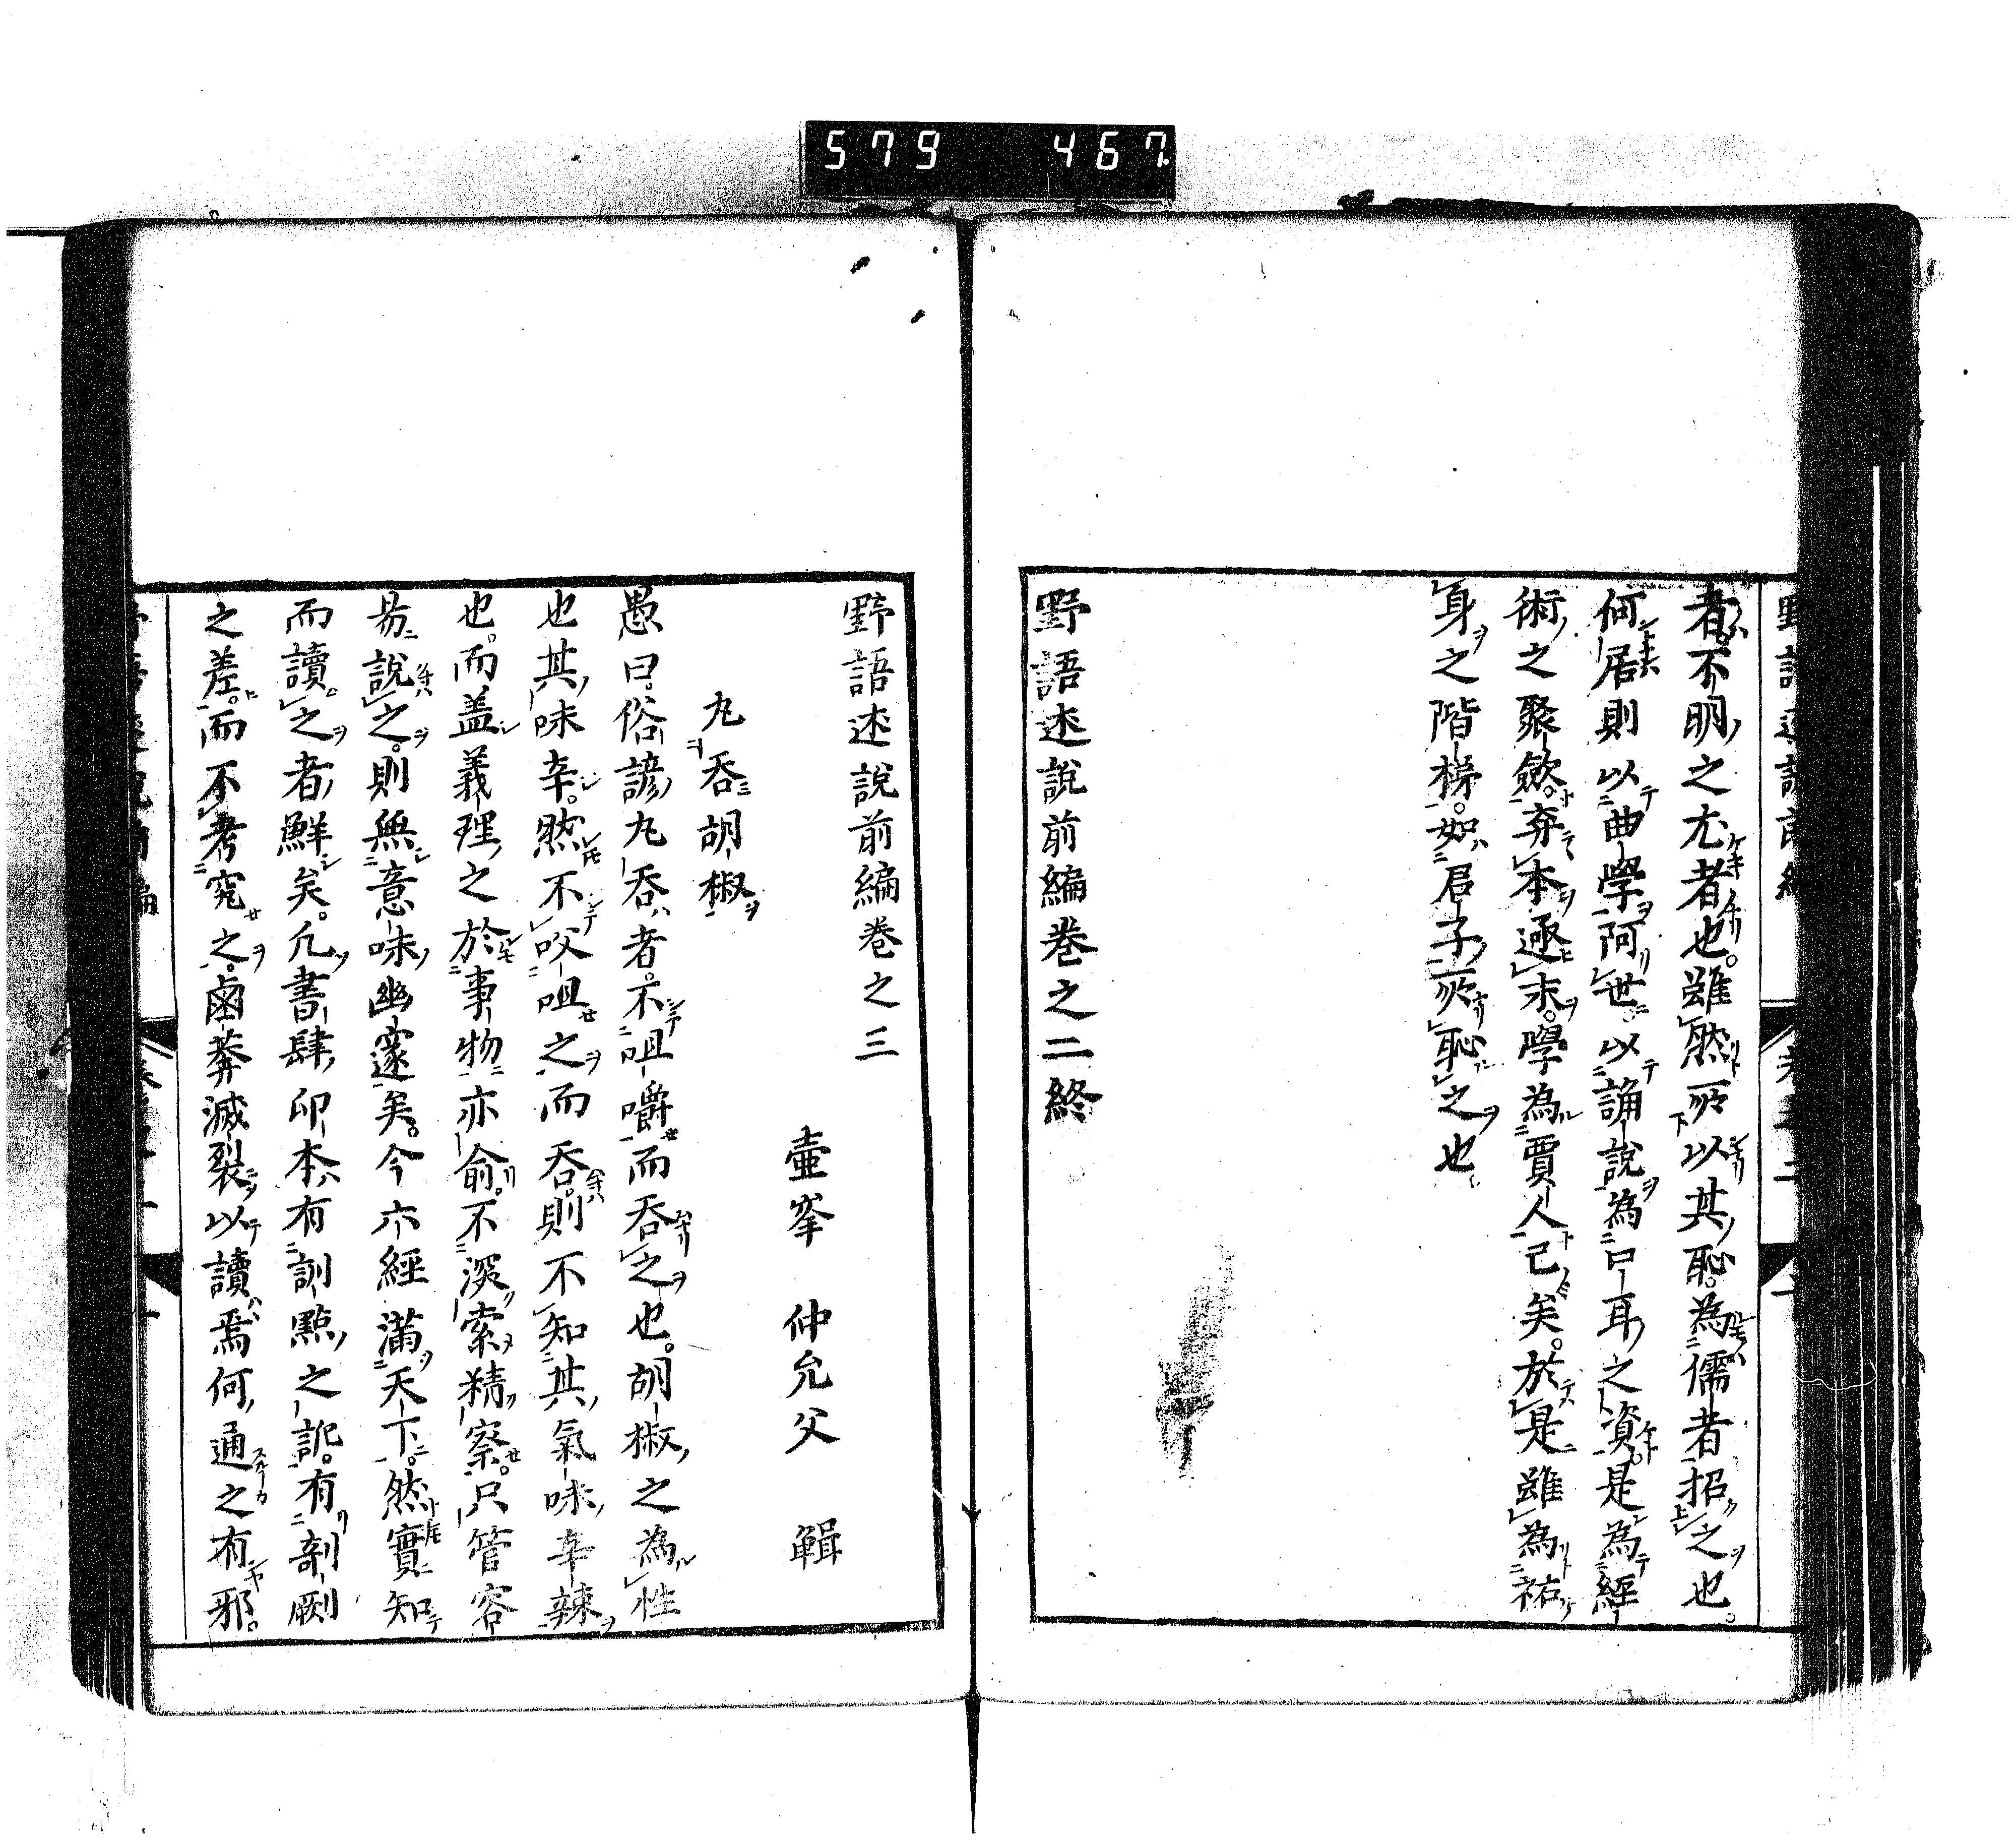 579 467
者不明之尤者也。雖然所以其恥。為儒者招之也。
何居則以曲學阿世。以誦說為口耳之資。是為經
術之聚斂。弃本逐末。學為賈人已矣。於是雖為祐
身之階梯。如君子所恥之也
野語述說前編卷之二終
野語述說前編卷之三
壷峯 仲允父 輯
丸吞胡椒
愚曰。俗諺丸吞者。不咀嚼而吞之也。胡椒之為性
也其味辛。然不㕮咀之而吞。則不知其氣味辛辣
也。而盖義理之於事物亦俞。不深索精察。只管容
易說之。則無意味幽邃矣。今六經滿天下。然實知
而讀之者鮮矣。凡書肆印本有訓點之訛。有剞劂
之差。而不考究之。鹵莽滅裂以讀焉何通之有邪。